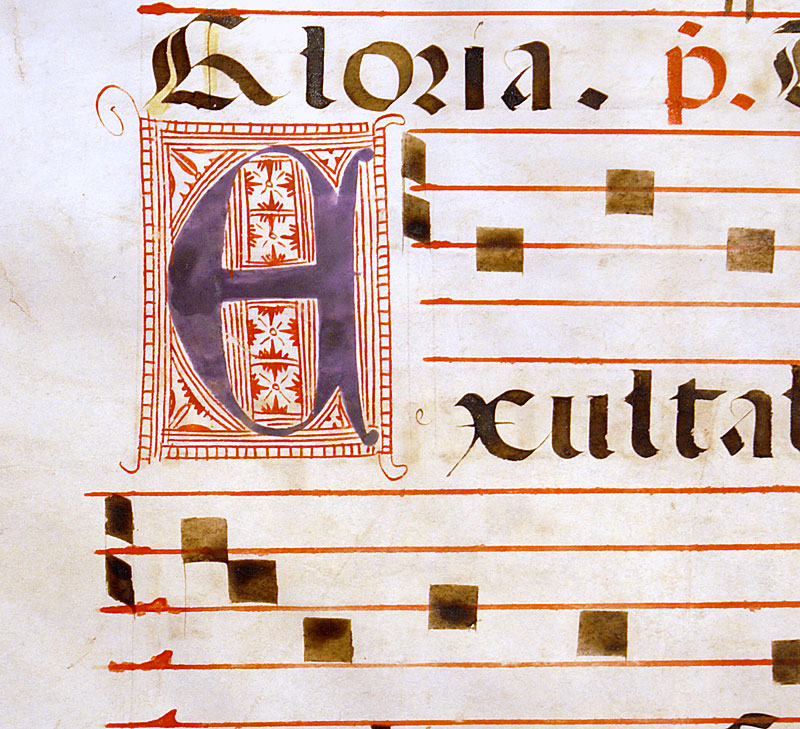 Gloria. p̄.
Exulta